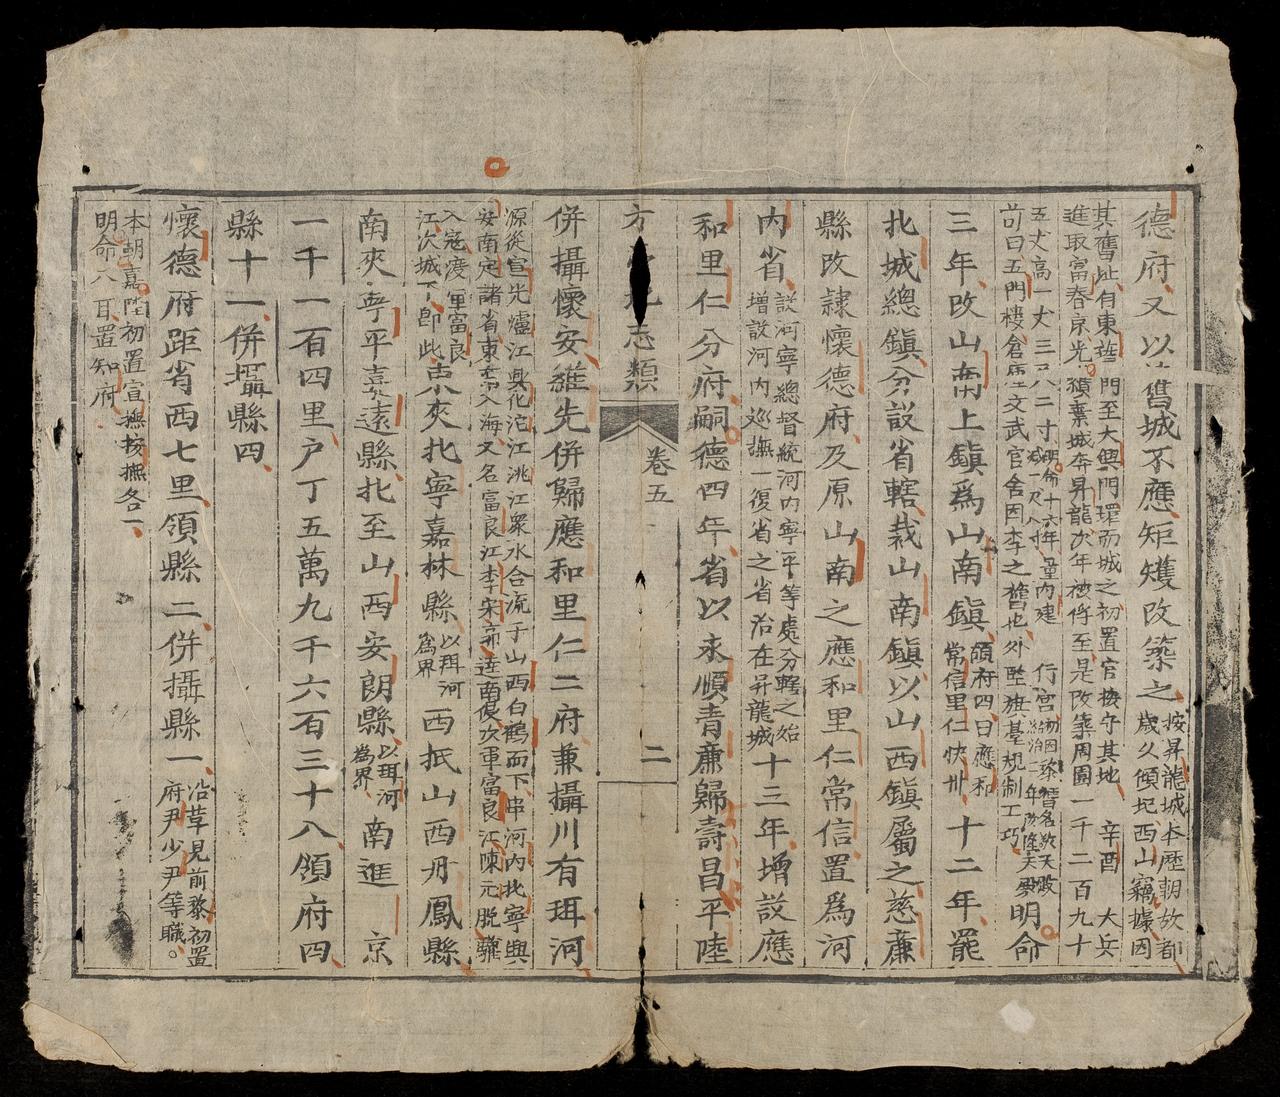 德府又以舊城不應矩矱改築之按昇龍城本歷朝故都
歲久傾圮西山竊據因
其舊址有東華門至大興門環而城之初置官按守其地辛酉大兵
進取富春京光纘棄城奔昇龍次年被俘至是改築周圍一千二百九十
五丈高一丈三尺二寸明命十六年量
減一尺八寸內建行宮
前曰五門樓倉庫文武官舍因李之舊也外墜旗臺規制工巧明命
三年改山南上鎮爲山南鎮領府四曰應和
常信里仁快州十二年罷
北城總鎮分設省轄裁山南鎮以山西鎮屬之慈廉
縣改隸懷德府及原山南之應和里仁常信置爲河
內省設河寧總督統河內寧平等處分轄之始
增設河內巡撫一復省之省治在昇龍城十三年增設應
和里仁分府嗣德四年省以永順青廉歸壽昌平陸
方 志類
卷五
二
併攝懷安維先併歸應和里仁二府兼攝川有珥河
源從宣光瀘江興化沱江洮江衆水合流于山西白鶴而下串河內北寧興
安南定諸省東 入海又名富良江李宋 逵南侵次軍富良江陳元脫驩
入寇渡軍富良
江次城下卽此 夾北寧嘉林縣以珥河
爲界西抵山西丹鳳縣
南夾寧平嘉遠縣北至山西安朗縣以珥河
爲界南進京
一千一百四里戶丁五萬九千六百三十八領府四
縣十一併攝縣四
懷德府距省西七里領縣二併攝縣一沿革見前黎初置
府尹少尹等職
本朝嘉隆初置宣撫按撫各一
明命八 置知府